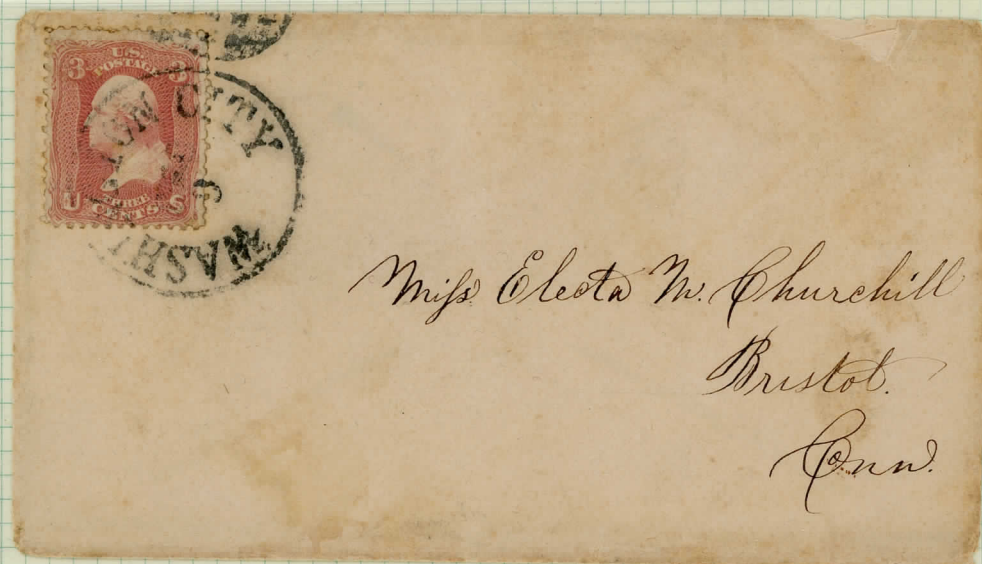 U.S.
POSTAGE
3 3
U S
THREE
CENTS
CITY
WASHI
Miss Electa M. Churchill
Bristol.
Conn.